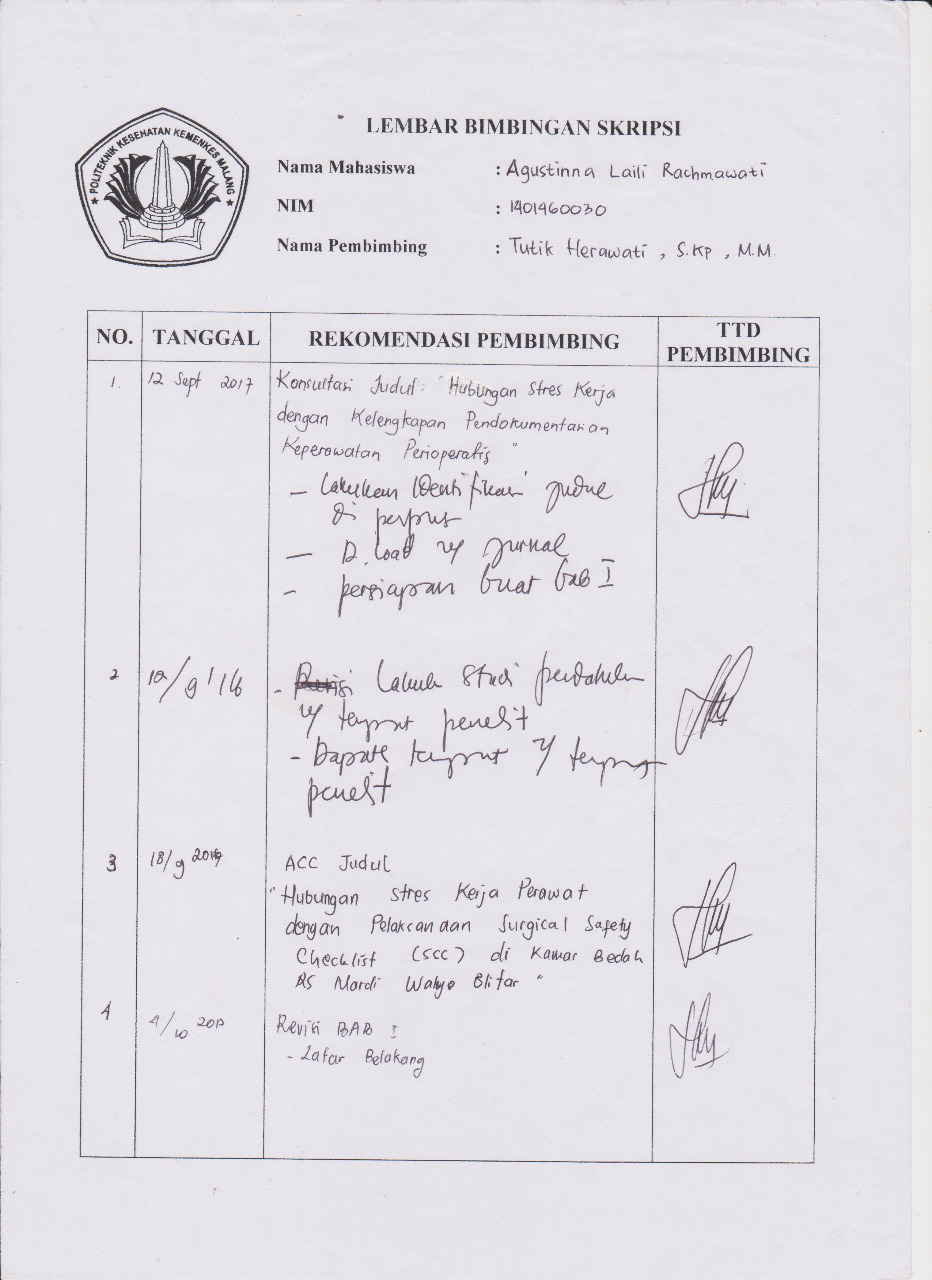 POLITEKNIK KESEHATAN KEMENKES MALANG
LEMBAR BIMBINGAN SKRIPSI
Nama Mahasiswa : Agustinna Laili Rachmawati
NIM : 1401460030
Nama Pembimbing : Tutik Herawati, S.Kp, M.M.
NO. TANGGAL REKOMENDASI PEMBIMBING TTD PEMBIMBING
1. 12 Sept 2017 Konsultasi Judul: "Hubungan Stres Kerja
dengan Kelengkapan Pendokumentasian
Keperawatan Perioperatif"
- Lakukan Identifikasi judul
di perpus
- D.load jurnal
- persiapan buat bab I
2 Studi
tempat penelit
- tempat
penelit
3 18/9 ACC Judul
"Hubungan Stres Kerja Perawat
dengan Pelaksanaan Surgical Safety
Checklist (SCC) di Kamar Bedah
RS Mardi Waluyo Blitar"
4 4/10 Revisi BAB I
- Latar Belakang